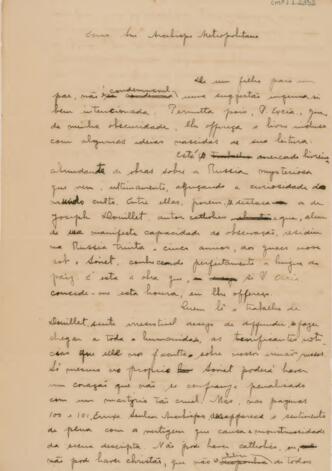 Exmo Snr Arcebispo Metropolitano
De um filho para um
pae, não é condemnavel uma suggestão ingenua si
bem intencionada. Permitta pois, V. Excia, que,
de minha obscuridade, lhe offereça o livro incluso
com algumas ideias nascidas de sua leitura.
Está o mercado livreiro
abundante de obras sobre a Russia mysteriosa
que vem, ultimamente, aguçando a curiosidade do
mundo culto. Entre ellas, porem, destaca a de
Joseph Douillet, autor catholico que, alem
de sua manifesta capacidade de observação, residiu
na Russia trinta e cinco annos, dos quaes nove
sob o Soviet, conhecendo perfeitamente a lingua do
paiz. E esta a obra que, si V. Excia
concede-me esta honra, eu lhe offereço.
Quem lê o trabalho de
Douillet, sente irresistivel desejo de diffundir, e fazer
chegar a toda a humanidade, as terrificantes noti-
cias que elle nos faculta sobre nossos irmãos russos.
Só mesmo no proprio Soviet poderá haver
um coração que não se confranja penalisado
com um martyrio tão cruel. Mas, nas paginas
100 e 101, Exmo Senhor Arcebispo, desapparece o sentimento
de pena com a vertigem que causa a monstruosidade
da scena descripta. Não pode haver catholico, ou,
não pode haver christão, que não de todos